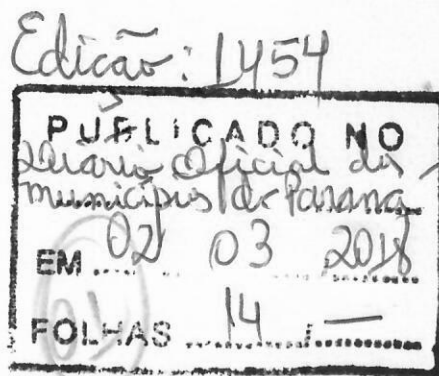 Edição: 1454
PUBLICADO NO
Diário Oficial dos
Municípios do Paraná
EM 02 03 2018
FOLHAS 14 / —